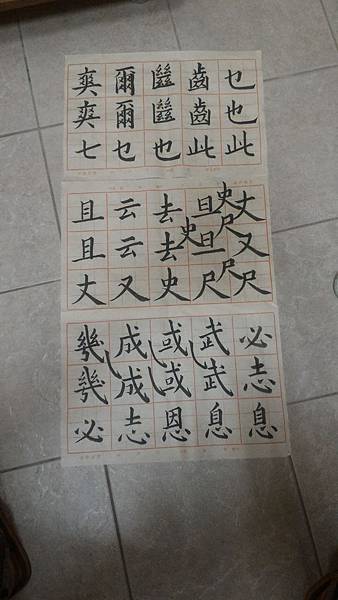 爽 爾 齒 乜
爽 爾 齒 也
七 乜 也 此 此
且 云 去 旦 史 丈
且 云 去 史 旦 尺 又
丈 又 史 一 尺 尺 尺
幾 成 或 武 必
幾 成 或 武 志
必 志 恩 息 息